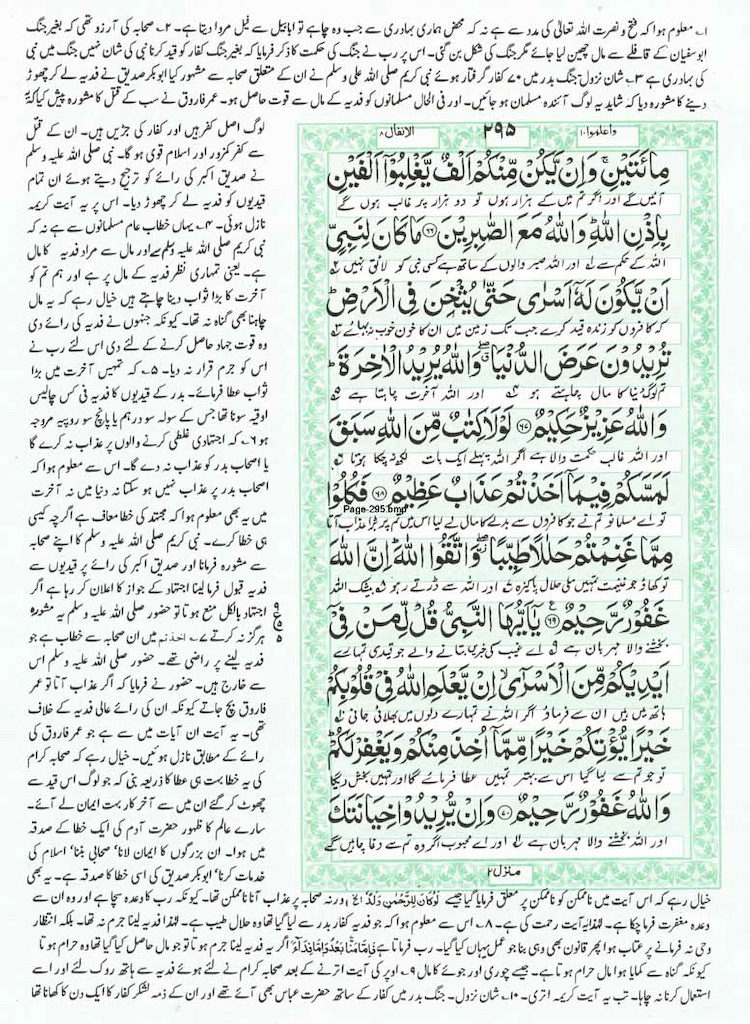 ۱۔ معلوم ہوا کہ فتح و نصرت اللہ تعالیٰ کی مدد سے ہے نہ کہ محض ہماری بہادری سے جب وہ چاہے تو ابابیل سے فیل مروا دیتا ہے۔ ۲۔ صحابہ کی آرزو تھی کہ بغیر جنگ
ابوسفیان کے قافلے سے مال چھین لیا جائے مگر جنگ کی شکل بن گئی۔ اس پر رب نے جنگ کی حکمت کا ذکر فرمایا کہ بغیر جنگ کفار کو قید کرنا نبی کی شان نہیں جنگ میں نبی
کی بہادری ہے ۳۔ شان نزول۔ جنگ بدر میں ۷۰ کفار گرفتار ہوئے نبی کریم صلی اللہ علیہ وسلم نے ان کے متعلق صحابہ سے مشورہ کیا ابوبکر صدیق نے فدیہ لے کر چھوڑ
دینے کا مشورہ دیا کہ شاید یہ لوگ آئندہ مسلمان ہو جائیں۔ اور فی الحال مسلمانوں کو فدیہ کے مال سے قوت حاصل ہو۔ عمر فاروق نے سب کے قتل کا مشورہ پیش کیا کہ یہ
واعلموا۱۰
۲۹۵
الانفال ۸
مِائَتَيْنِ ۚ وَاِنْ يَّكُنْ مِّنْكُمْ اَلْفٌ يَّغْلِبُوْٓا اَلْفَيْنِ
آئیں گے اور اگر تم میں کے ہزار ہوں تو دو ہزار پر غالب ہوں گے
بِاِذْنِ اللّٰهِ ۗ وَاللّٰهُ مَعَ الصّٰبِرِيْنَ ۶۶ مَا كَانَ لِنَبِيٍّ
اللہ کے حکم سے اور اللہ صبر والوں کے ساتھ ہے کسی نبی کو لائق نہیں
اَنْ يَّكُوْنَ لَهٗٓ اَسْرٰى حَتّٰى يُثْخِنَ فِى الْاَرْضِ ؕ
کہ کافروں کو زندہ قید کرے جب تک زمین میں ان کا خون خوب نہ بہائے
تُرِيْدُوْنَ عَرَضَ الدُّنْيَا ۖ وَاللّٰهُ يُرِيْدُ الْاٰخِرَةَ ؕ
تم لوگ دنیا کا مال چاہتے ہو اور اللہ آخرت چاہتا ہے
وَاللّٰهُ عَزِيْزٌ حَكِيْمٌ ۶۷ لَوْلَا كِتٰبٌ مِّنَ اللّٰهِ سَبَقَ
اور اللہ غالب حکمت والا ہے اگر اللہ پہلے ایک بات لکھ نہ چکا ہوتا
لَمَسَّكُمْ فِيْمَآ اَخَذْتُمْ عَذَابٌ عَظِيْمٌ ۶۸ فَكُلُوْا
Page-295.bmp
تو اے مسلمانو تم نے جو کافروں سے بدلے کا مال لے لیا اس میں تم پر بڑا عذاب آتا
مِمَّا غَنِمْتُمْ حَلٰلًا طَيِّبًا ۖ وَّاتَّقُوا اللّٰهَ ؕ اِنَّ اللّٰهَ
تو کھاؤ جو غنیمت تمہیں ملی حلال پاکیزہ اور اللہ سے ڈرتے رہو بیشک اللہ
غَفُوْرٌ رَّحِيْمٌ ۶۹ يٰٓاَيُّهَا النَّبِىُّ قُلْ لِّمَنْ فِىْٓ
بخشنے والا مہربان ہے اے غیب کی خبریں بتانے والے جو قیدی تمہارے
اَيْدِيْكُمْ مِّنَ الْاَسْرٰٓى ۙ اِنْ يَّعْلَمِ اللّٰهُ فِىْ قُلُوْبِكُمْ
ہاتھ میں ہیں ان سے فرماؤ اگر اللہ نے تمہارے دلوں میں بھلائی جانی
خَيْرًا يُّؤْتِكُمْ خَيْرًا مِّمَّآ اُخِذَ مِنْكُمْ وَيَغْفِرْ لَكُمْ ؕ
تو جو تم سے لیا گیا اس سے بہتر تمہیں عطا فرمائے گا اور تمہیں بخش دیگا
وَاللّٰهُ غَفُوْرٌ رَّحِيْمٌ ۷۰ وَاِنْ يُّرِيْدُوْا خِيَانَتَكَ
اور اللہ بخشنے والا مہربان ہے اور اے محبوب اگر وہ تم سے دغا چاہیں گے
منزل۲
لوگ اصل کفر ہیں اور کفار کی جڑیں ہیں۔ ان کے قتل
سے کفر کمزور اور اسلام قوی ہو گا۔ نبی صلی اللہ علیہ وسلم
نے صدیق اکبر کی رائے کو ترجیح دیتے ہوئے ان تمام
قیدیوں کو فدیہ لے کر چھوڑ دیا۔ اس پر یہ آیت کریمہ
نازل ہوئی۔ ۴۔ یہاں خطاب عام مسلمانوں سے ہے نہ کہ
نبی کریم صلی اللہ علیہ وسلم سے اور مال سے مراد فدیہ کا مال
ہے۔ یعنی تمہاری نظر فدیہ کے مال پر ہے اور ہم تم کو
آخرت کا بڑا ثواب دینا چاہتے ہیں خیال رہے کہ یہ مال
چاہنا بھی گناہ نہ تھا۔ کیونکہ جنہوں نے فدیہ کی رائے دی
وہ قوت جہاد حاصل کرنے کے لئے دی اس لئے رب نے
اس کو جرم قرار نہ دیا۔ ۵۔ کہ تمہیں آخرت میں بڑا
ثواب عطا فرمائے۔ بدر کے قیدیوں کا فدیہ فی کس چالیس
اوقیہ سونا تھا جس کے سولہ سو درہم یا پانچ سو روپیہ مروجہ
ہو ۶۔ کہ اجتہادی غلطی کرنے والوں پر عذاب نہ کرے گا
یا اصحاب بدر کو عذاب نہ دے گا۔ اس سے معلوم ہوا کہ
اصحاب بدر پر عذاب نہیں ہو سکتا نہ دنیا میں نہ آخرت
میں یہ بھی معلوم ہوا کہ مجتہد کی خطا معاف ہے اگرچہ کیسی
ہی خطا کرے۔ نبی کریم صلی اللہ علیہ وسلم کا اپنے صحابہ
سے مشورہ فرمانا اور صدیق اکبر کی رائے پر قیدیوں سے
فدیہ قبول فرما لینا اجتہاد کے جواز کا اعلان کر رہا ہے اگر
اجتہاد بالکل منع ہوتا تو حضور صلی اللہ علیہ وسلم یہ مشورہ
ہرگز نہ کرتے ۷۔ اخذتم میں ان صحابہ سے خطاب ہے جو
فدیہ لینے پر راضی تھے۔ حضور صلی اللہ علیہ وسلم اس
سے خارج ہیں۔ حضور نے فرمایا کہ اگر عذاب آتا تو عمر
فاروق بچ جاتے کیونکہ ان کی رائے عالی فدیہ کے خلاف
تھی۔ یہ آیت ان آیات میں سے ہے جو عمر فاروق کی
رائے کے مطابق نازل ہوئیں۔ خیال رہے کہ صحابہ کرام
کی یہ خطا بہت ہی عطا کا ذریعہ بنی کہ جو لوگ اس قید سے
چھوٹ کر گئے ان میں سے آخر کار بہت ایمان لے آئے۔
سارے عالم کا ظہور حضرت آدم کی ایک خطا کے صدقہ
میں ہوا۔ ان بزرگوں کا ایمان لانا‘ صحابی بننا‘ اسلام کی
خدمات کرنا‘ ابوبکر صدیق کی اسی خطا کا صدقہ ہے۔ یہ بھی
خیال رہے کہ اس آیت میں ناممکن کو ناممکن پر معلق فرمایا گیا جیسے لَوْكَانَ لِلرَّحْمٰنِ وَلَدٌ الخ ورنہ صحابہ پر عذاب آنا ناممکن تھا۔ کیونکہ رب کا وعدہ سچا ہے اور وہ ان سے
وعدہ مغفرت فرما چکا ہے۔ لہٰذا یہ آیت رحمت کی ہے۔ ۸۔ اس سے معلوم ہوا کہ جو فدیہ کفار بدر سے لیا گیا تھا وہ حلال طیب ہے۔ لہٰذا فدیہ لینا جرم نہ تھا۔ بلکہ انتظار
وحی نہ فرمانے پر عتاب ہوا پھر قانون بھی وہی بنا جو عمل یہاں کیا گیا۔ رب فرماتا ہے فَاِمَّا مَنًّا بَعْدُ وَاِمَّا فِدَآءً اگر یہ فدیہ لینا جرم ہوتا تو جو مال حاصل کیا گیا تھا وہ حرام ہوتا
کیونکہ گناہ سے کمایا ہوا مال حرام ہوتا ہے۔ جیسے چوری اور جوئے کا مال ۹۔ اوپر کی آیت اترنے کے بعد صحابہ کرام نے لئے ہوئے فدیہ سے ہاتھ روک لئے اور اسے
استعمال کرنا نہ چاہا۔ تب یہ آیت کریمہ اتری۔ ۱۰۔ شان نزول۔ جنگ بدر میں کفار کے ساتھ حضرت عباس بھی آئے تھے اور ان کے ذمہ لشکر کفار کا ایک دن کا کھانا تھا